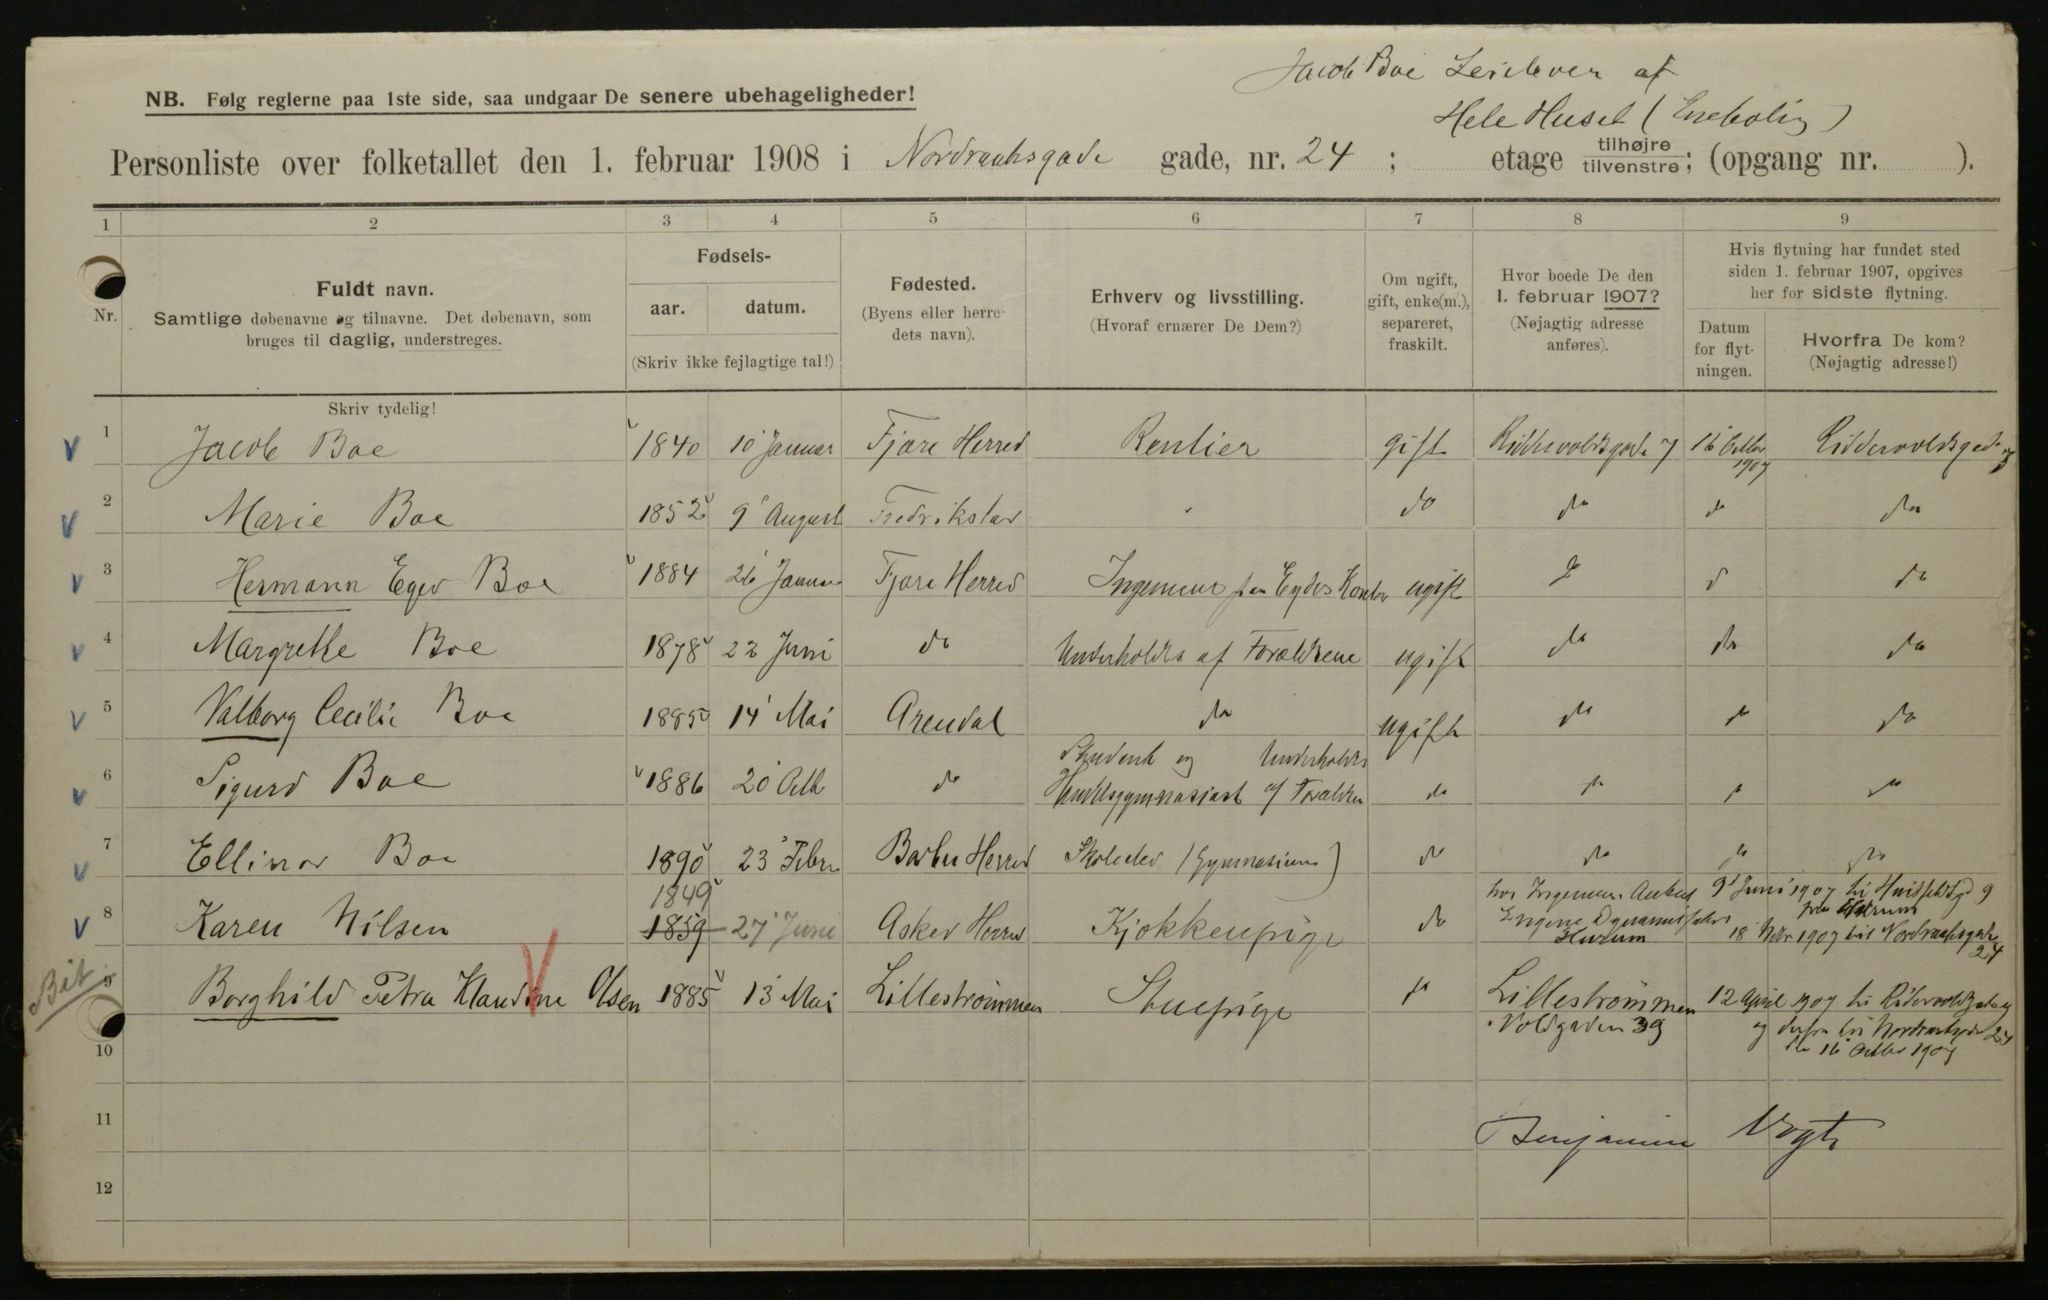 Jacob Boe Leieboer af
NB. Følg reglerne paa 1ste side, saa undgaar De senere ubehageligheder!
Hele Huset (Enebolig)
Personliste over folketallet den 1. februar 1908 i Nordraaksgade gade, nr. 24; etage tilhøjre tilvenstre; (opgang nr. ).
1 2 3 4 5 6 7 8 9
Nr.
Fuldt navn.
Samtlige døbenavne og tilnavne. Det døbenavn, som
bruges til daglig, understreges.
Skriv tydelig!
Fødsels-
aar. datum.
(Skriv ikke fejlagtige tal!)
Fødested.
(Byens eller herre-
dets navn).
Erhverv og livsstilling.
(Hvoraf ernærer De Dem?)
Om ugift,
gift, enke(m.),
separeret,
fraskilt.
Hvor boede De den
1. februar 1907?
(Nøjagtig adresse
anføres).
Hvis flytning har fundet sted
siden 1. februar 1907, opgives
her for sidste flytning.
Datum
for flyt-
ningen.
Hvorfra De kom?
(Nøjagtig adresse!)
1 Jacob Boe 1840 10 Januar Fjære Herred Rentier gift Riddervoldsgade 7 16 Octbr 1907 Riddervoldsgade 7
2 Marie Boe 1852 9 August Fredrikstad do do do do
3 Hermann Eger Boe 1884 26 Januar Fjære Herred Ingenieur paa Eydes Kontor ugift do do do
4 Margrethe Boe 1878 22 Juni do Underholdes af Forældrene ugift do do do
5 Valborg Cecilie Boe 1885 14 Mai Arendal do ugift do do do
6 Sigurd Boe 1886 20 Octb do Student og Handelsgymnasiast Underholdes af Forældre do do do do
7 Ellinor Boe 1890 23 Febr Barbu Herred Skoleelev (Gymnasium) do do do do
8 Karen Nilsen 1849 1859 27 Juni Asker Herred Kjøkkenpige do hos Ingeniør
Engene Dynamitfabr
Hurum
9 Juni 1907 til Huitfeldtsgd 9
fra Hurum
18 Nvbr 1907 til Nordraaksgade
24
Bit
9 Borghild Petra Klaudine Olsen 1885 13 Mai Lillestrømmen Stuepige do Lillestrømmen
Voldgaden 39
12 April 1907 til Riddervoldsgade
og derfra til Nordraaksgade 24
den 16 Octbr 1907
10
11
Benjamin Vogt
12